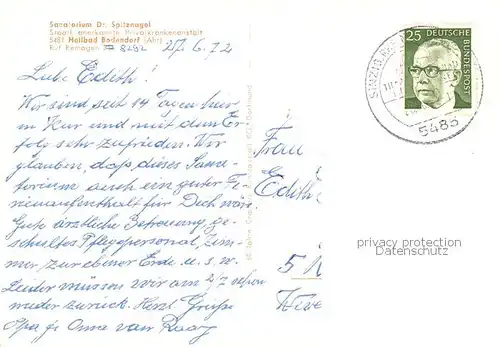 Sanatorium Dr. Spitznagel
Staatl. anerkannte Privatkrankenanstalt
5481 Heilbad Bodendorf (Ahr)
Ruf Remagen 8292
27.6.72
Liebe Edith!
Wir sind seit 14 Tagen hier
in Kur und mit dem Er-
folg sehr zufrieden. Wir
glauben, daß dieses Sana-
torium auch ein guter Fe-
rienaufenthalt für Dich wäre.
Gute ärztliche Betreuung, ge-
schultes Pflegepersonal, Zim-
mer zur ebener Erde u. s. w.
Leider müssen wir am 2/7 schon
wieder zurück. Herzl. Grüße
Opa Oma van
25 DEUTSCHE
BUNDESPOST
5485
Frau
Edith
5
privacy protection
Datenschutz